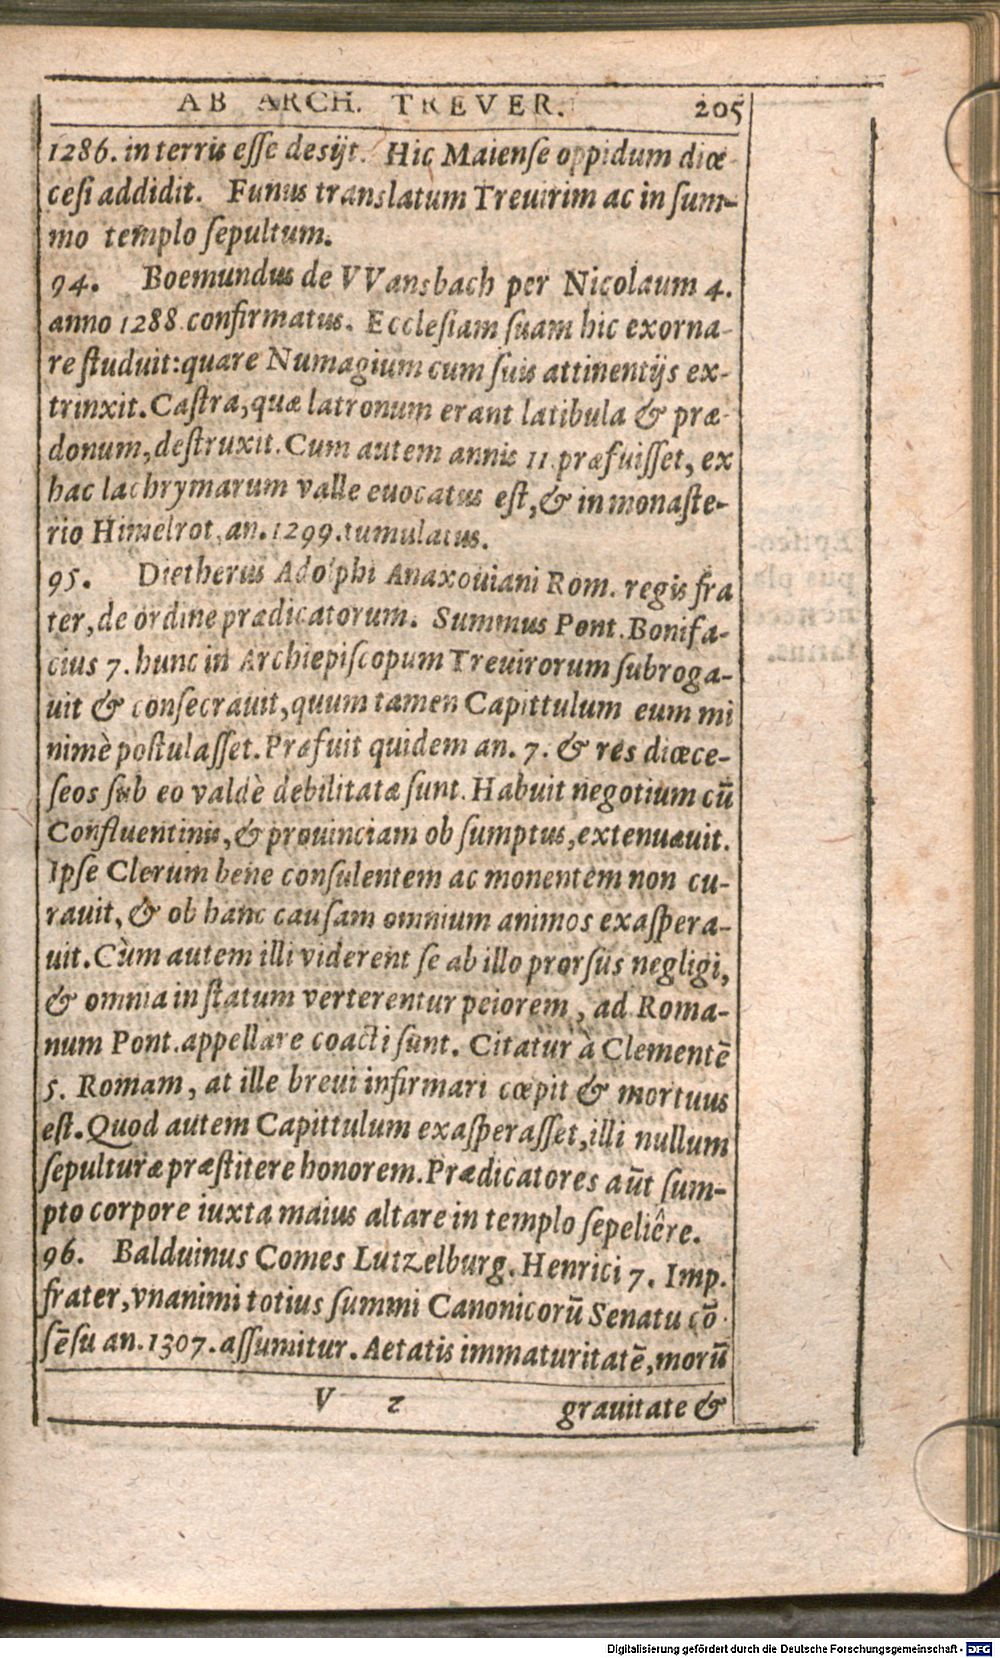 AB ARCH. TREVER. 205
1286. in terris eſſe desijt. Hic Maienſe oppidum diœ-
ceſi addidit. Funus translatum Treuirim ac in ſum-
mo templo ſepultum.
94. Boemundus de VVansbach per Nicolaum 4.
anno 1288. confirmatus. Eccleſiam ſuam hic exorna-
re ſtuduit: quare Numagium cum ſuis attinentijs ex-
trinxit. Caſtra, quæ latronum erant latibula & præ-
donum, deſtruxit. Cum autem annis 11. præfuiſſet, ex
hac lachrymarum valle euocatus eſt, & in monaſte-
rio Himelrot, an. 1299. tumulatus.
95. Dietherus Adolphi Anaxouiani Rom. regis fra
ter, de ordine prædicatorum. Summus Pont. Bonifa-
cius 7. hunc in Archiepiſcopum Treuirorum ſubroga-
uit & conſecrauit, quum tamen Capittulum eum mi
nimè poſtulaſſet. Præfuit quidem an. 7. & res diœce-
ſeos ſub eo valdè debilitatæ ſunt. Habuit negotium cū
Confluentinis, & prouinciam ob ſumptus, extenuauit.
Ipſe Clerum bene conſulentem ac monentem non cu-
rauit, & ob hanc cauſam omnium animos exaſpera-
uit. Cùm autem illi viderent ſe ab illo prorſus negligi,
& omnia in ſtatum verterentur peiorem, ad Roma-
num Pont. appellare coacti ſunt. Citatur à Clementē
5. Romam, at ille breui infirmari cœpit & mortuus
eſt. Quod autem Capittulum exaſperaſſet, illi nullum
ſepulturæ præſtitere honorem. Prædicatores aūt ſum-
pto corpore iuxta maius altare in templo ſepeliêre.
96. Balduinus Comes Lutzelburg. Henrici 7. Imp.
frater, vnanimi totius ſummi Canonicorū Senatu cō-
ſēſu an. 1307. aſſumitur. Aetatis immaturitatē, morū
V 2 grauitate &
Digitalisierung gefördert durch die Deutsche Forschungsgemeinschaft - DFG